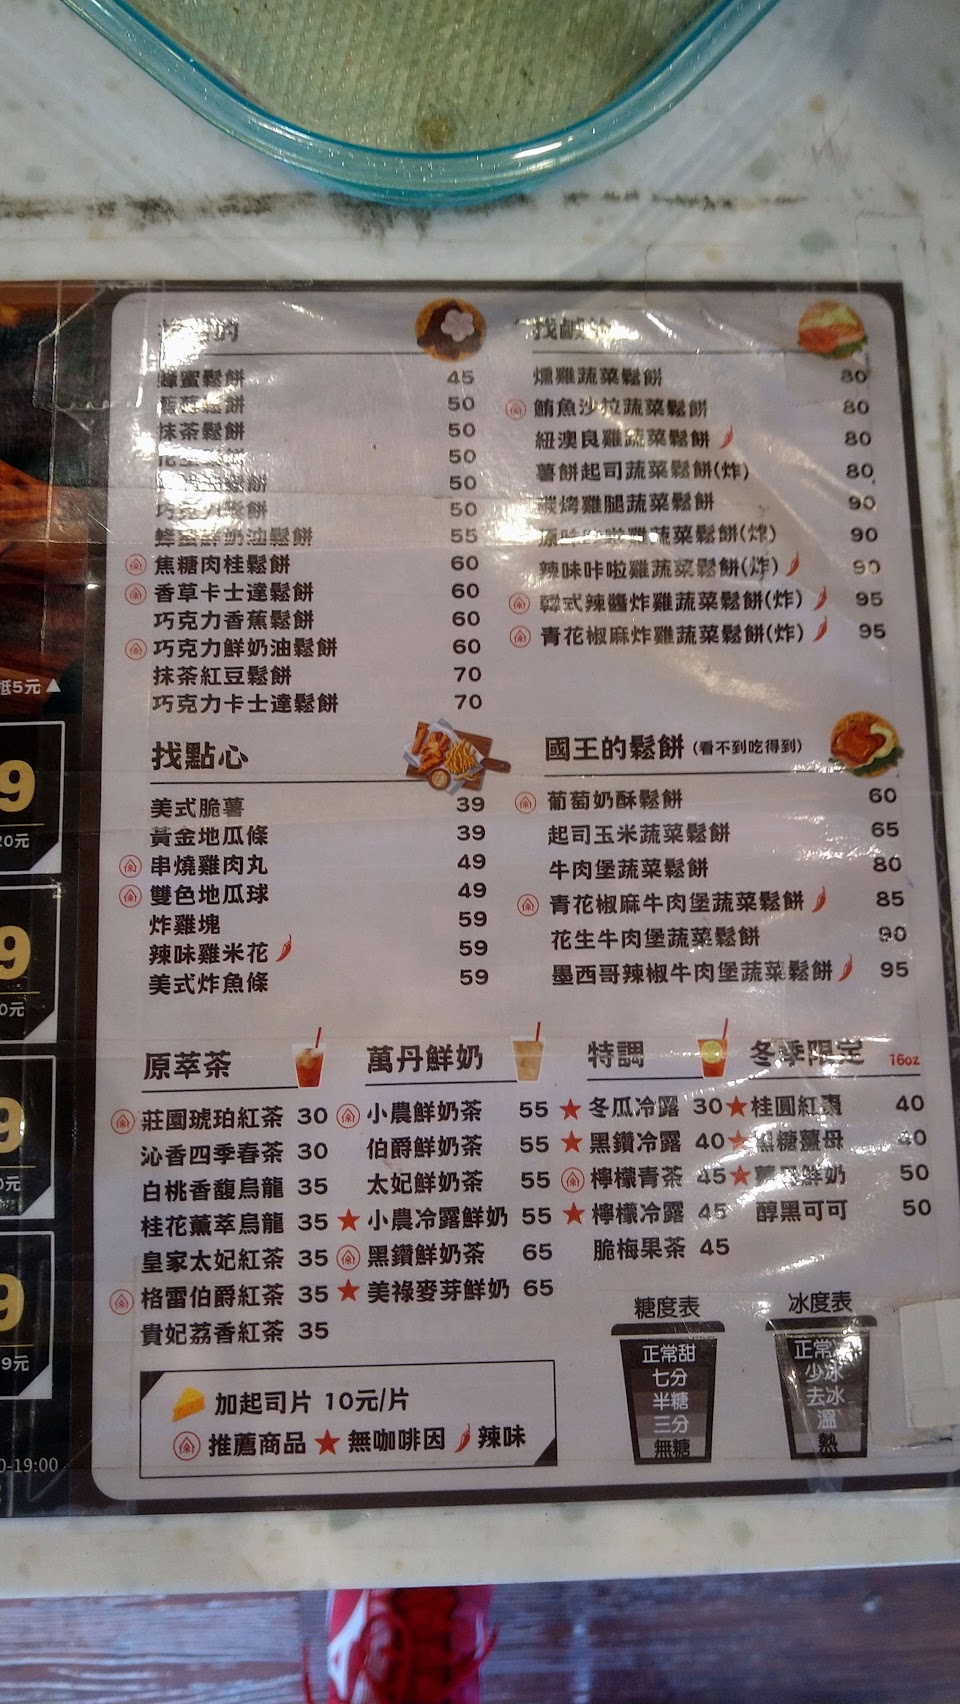 的
45
蜂蜜鬆餅
50
抹茶鬆餅 50
50
鬆餅 50
巧克力鬆餅 50
蜂蜜鮮奶油鬆餅 55
焦糖肉桂鬆餅 60
香草卡士達鬆餅 60
巧克力香蕉鬆餅 60
巧克力鮮奶油鬆餅 60
抹茶紅豆鬆餅 70
巧克力卡士達鬆餅 70
找鹹
燻雞蔬菜鬆餅 80
鮪魚沙拉蔬菜鬆餅 80
紐澳良雞蔬菜鬆餅 80
薯餅起司蔬菜鬆餅(炸) 80
碳烤雞腿蔬菜鬆餅 90
雞蔬菜鬆餅(炸) 90
辣味咔啦雞蔬菜鬆餅(炸) 90
韓式辣醬炸雞蔬菜鬆餅(炸) 95
青花椒麻炸雞蔬菜鬆餅(炸) 95
找點心
美式脆薯 39
黃金地瓜條 39
串燒雞肉丸 49
雙色地瓜球 49
炸雞塊 59
辣味雞米花 59
美式炸魚條 59
國王的鬆餅 (看不到吃得到)
葡萄奶酥鬆餅 60
起司玉米蔬菜鬆餅 65
牛肉堡蔬菜鬆餅 80
青花椒麻牛肉堡蔬菜鬆餅 85
花生牛肉堡蔬菜鬆餅 90
墨西哥辣椒牛肉堡蔬菜鬆餅 95
原萃茶
莊園琥珀紅茶 30
沁香四季春茶 30
白桃香馥烏龍 35
桂花薰萃烏龍 35
皇家太妃紅茶 35
格雷伯爵紅茶 35
貴妃荔香紅茶 35
萬丹鮮奶
小農鮮奶茶 55
伯爵鮮奶茶 55
太妃鮮奶茶 55
★ 小農冷露鮮奶 55
黑鑽鮮奶茶 65
★ 美祿麥芽鮮奶 65
特調
★ 冬瓜冷露 30
★ 黑鑽冷露 40
檸檬青茶 45
★ 檸檬冷露 45
脆梅果茶 45
冬季限定 16oz
★ 桂圓紅棗 40
★ 黑糖薑母 40
★ 鮮奶 50
醇黑可可 50
加起司片 10元/片
推薦商品 ★ 無咖啡因 辣味
糖度表
正常甜
七分
半糖
三分
無糖
冰度表
正常
少冰
去冰
溫
熱
抵5元▲
9
20元
9
0元
9
0元
9
9元
0-19:00